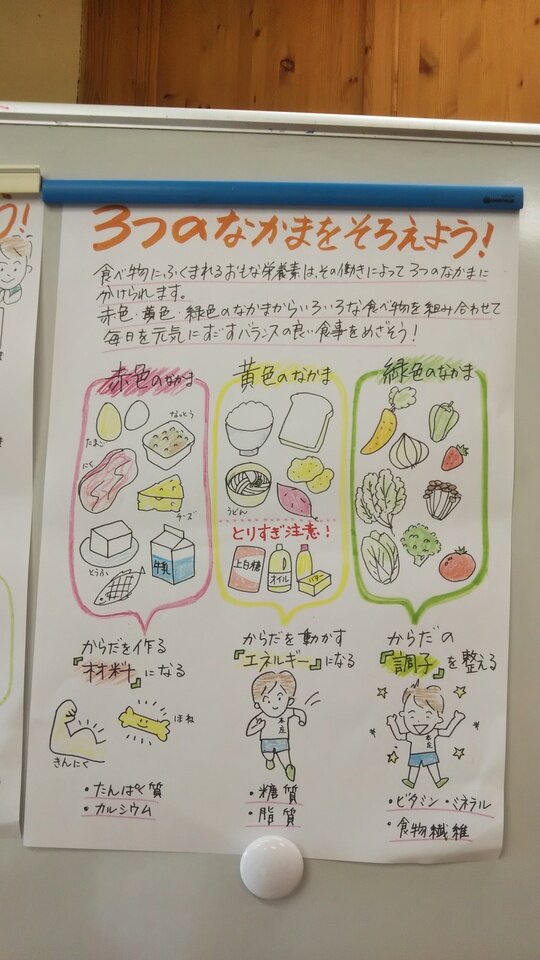 う!
3つのなかまをそろえよう!
食べ物にふくまれるおもな栄養素は、その働きによって3つのなかまに
分けられます。
赤色・黄色・緑色のなかまからいろいろな食べ物を組み合わせて
毎日を元気にすごすバランスの良い食事をめざそう!
赤色のなかま
たまご
なっとう
にく
チーズ
とうふ
牛乳
からだを作る
『材料』になる
きんにく
ほね
・たんぱく質
・カルシウム
黄色のなかま
うどん
とりすぎ注意!
上白糖
オイル
バター
からだを動かす
『エネルギー』になる
・糖質
・脂質
緑色のなかま
からだの
『調子』を整える
・ビタミン・ミネラル
・食物繊維